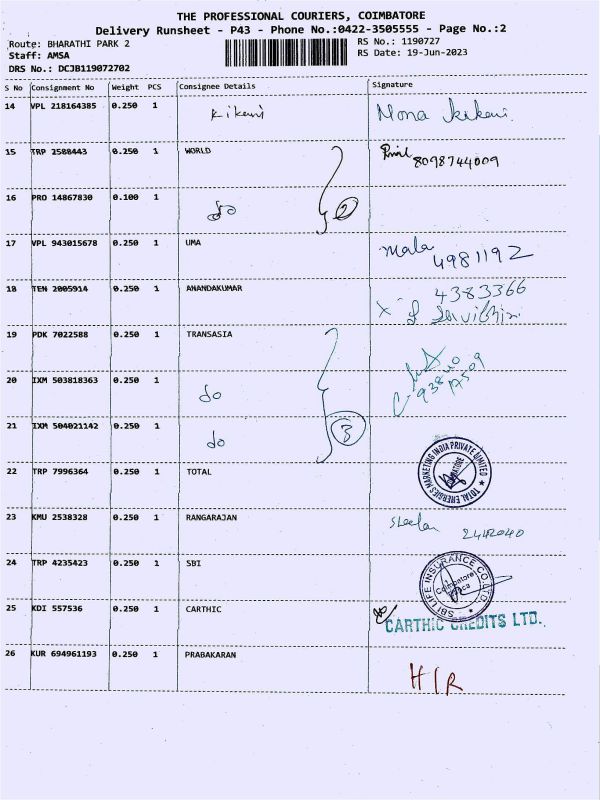 THE PROFESSIONAL COURIERS, COIMBATORE
Delivery Runsheet - P43 - Phone No.:0422-3505555 - Page No.:2
Route: BHARATHI PARK 2
RS No.: 1190727
Staff: AMSA
RS Date: 19-Jun-2023
DRS No.: DCJB119072702
S No Consignment No Weight PCS Consignee Details Signature
14 VPL 218164385 0.250 1 Kikani Mona Kikani
15 TRP 2588443 0.250 1 WORLD 8098744009
16 PRO 14867830 0.100 1 do 2
17 VPL 943015678 0.250 1 UMA Mala 4981192
18 TEN 2005914 0.250 1 ANANDAKUMAR 4383366
19 PDK 7022588 0.250 1 TRANSASIA
20 IXM 503818363 0.250 1 do
21 IXM 504021142 0.250 1 do 3
22 TRP 7996364 0.250 1 TOTAL TOTAL ENERGIES MARKETING INDIA PRIVATE LIMITED
23 KMU 2538328 0.250 1 RANGARAJAN Sheela 2442040
24 TRP 4235423 0.250 1 SBI SBI LIFE INSURANCE CO. LTD. Coimbatore
25 KDI 557536 0.250 1 CARTHIC CARTHIC CREDITS LTD.
26 KUR 694961193 0.250 1 PRABAKARAN H/R